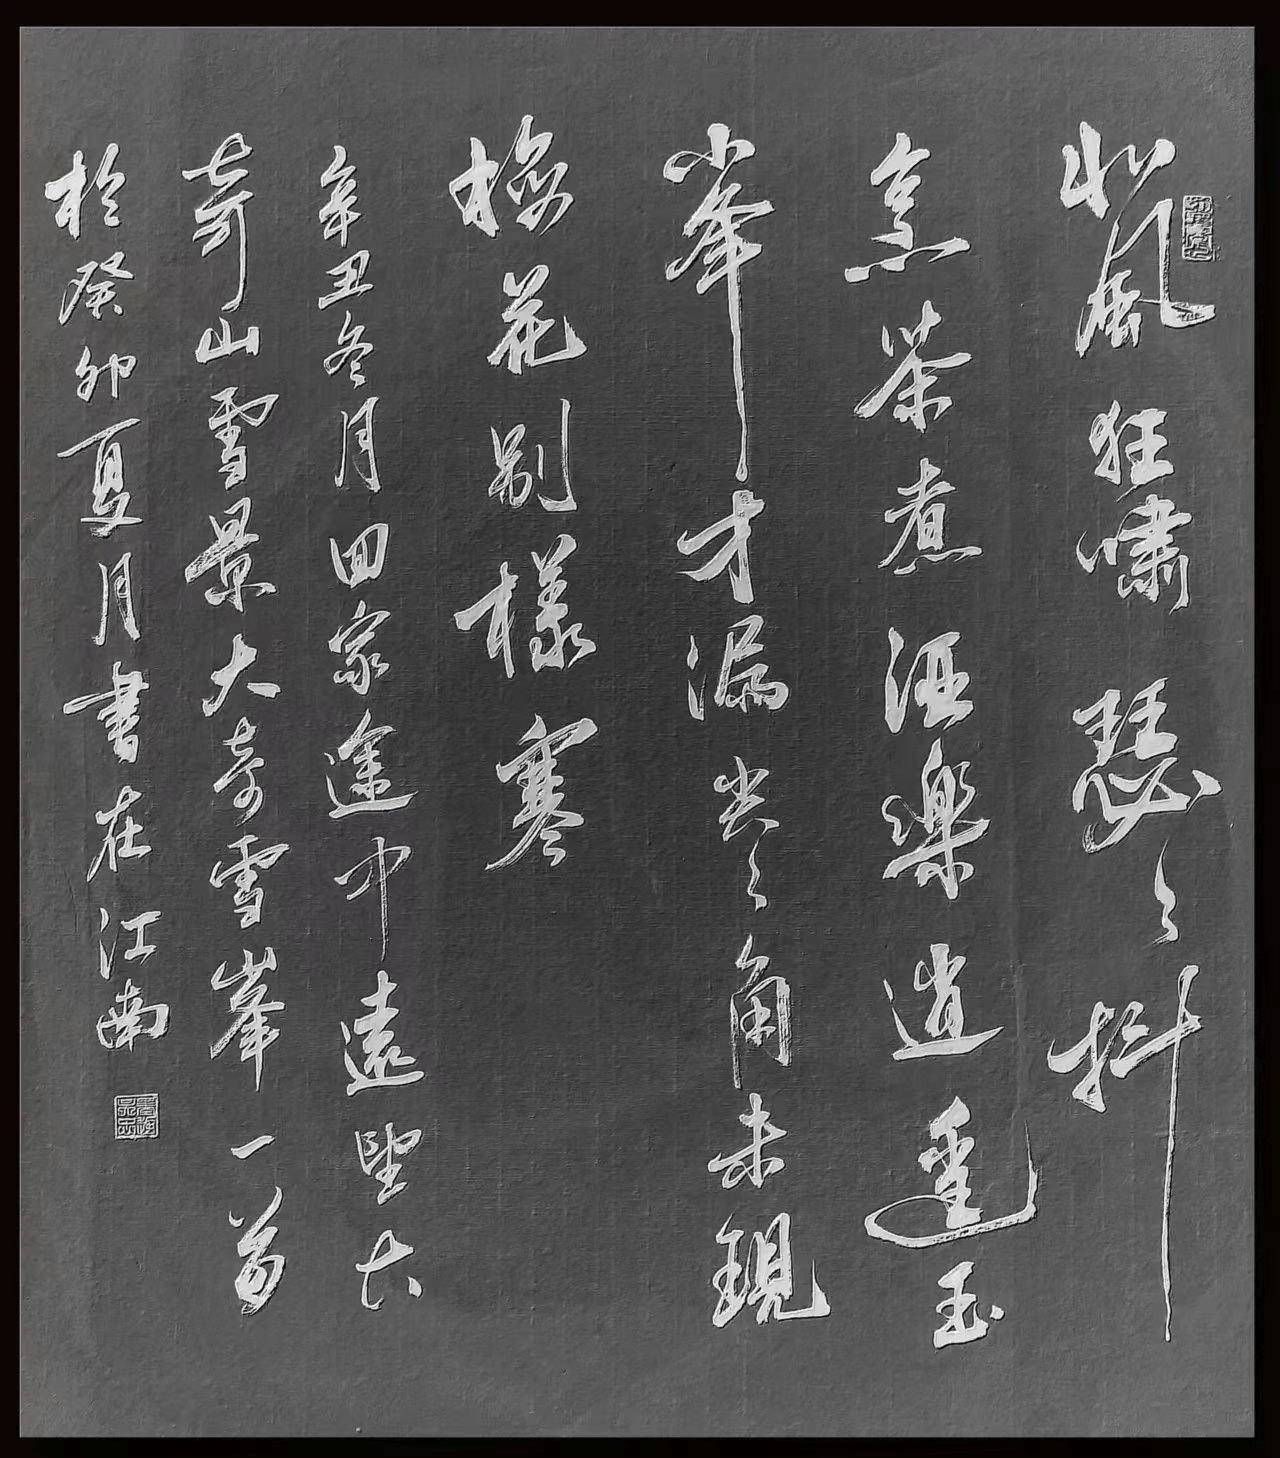 北風狂嘯瑟々抖
烹茶煮酒樂逍遥玉
峯才漏尖々角未現
梅花别樣寒
辛丑冬月回家途中遠望大
奇山雪景大奇雪峯一首
於癸卯夏月書在江南